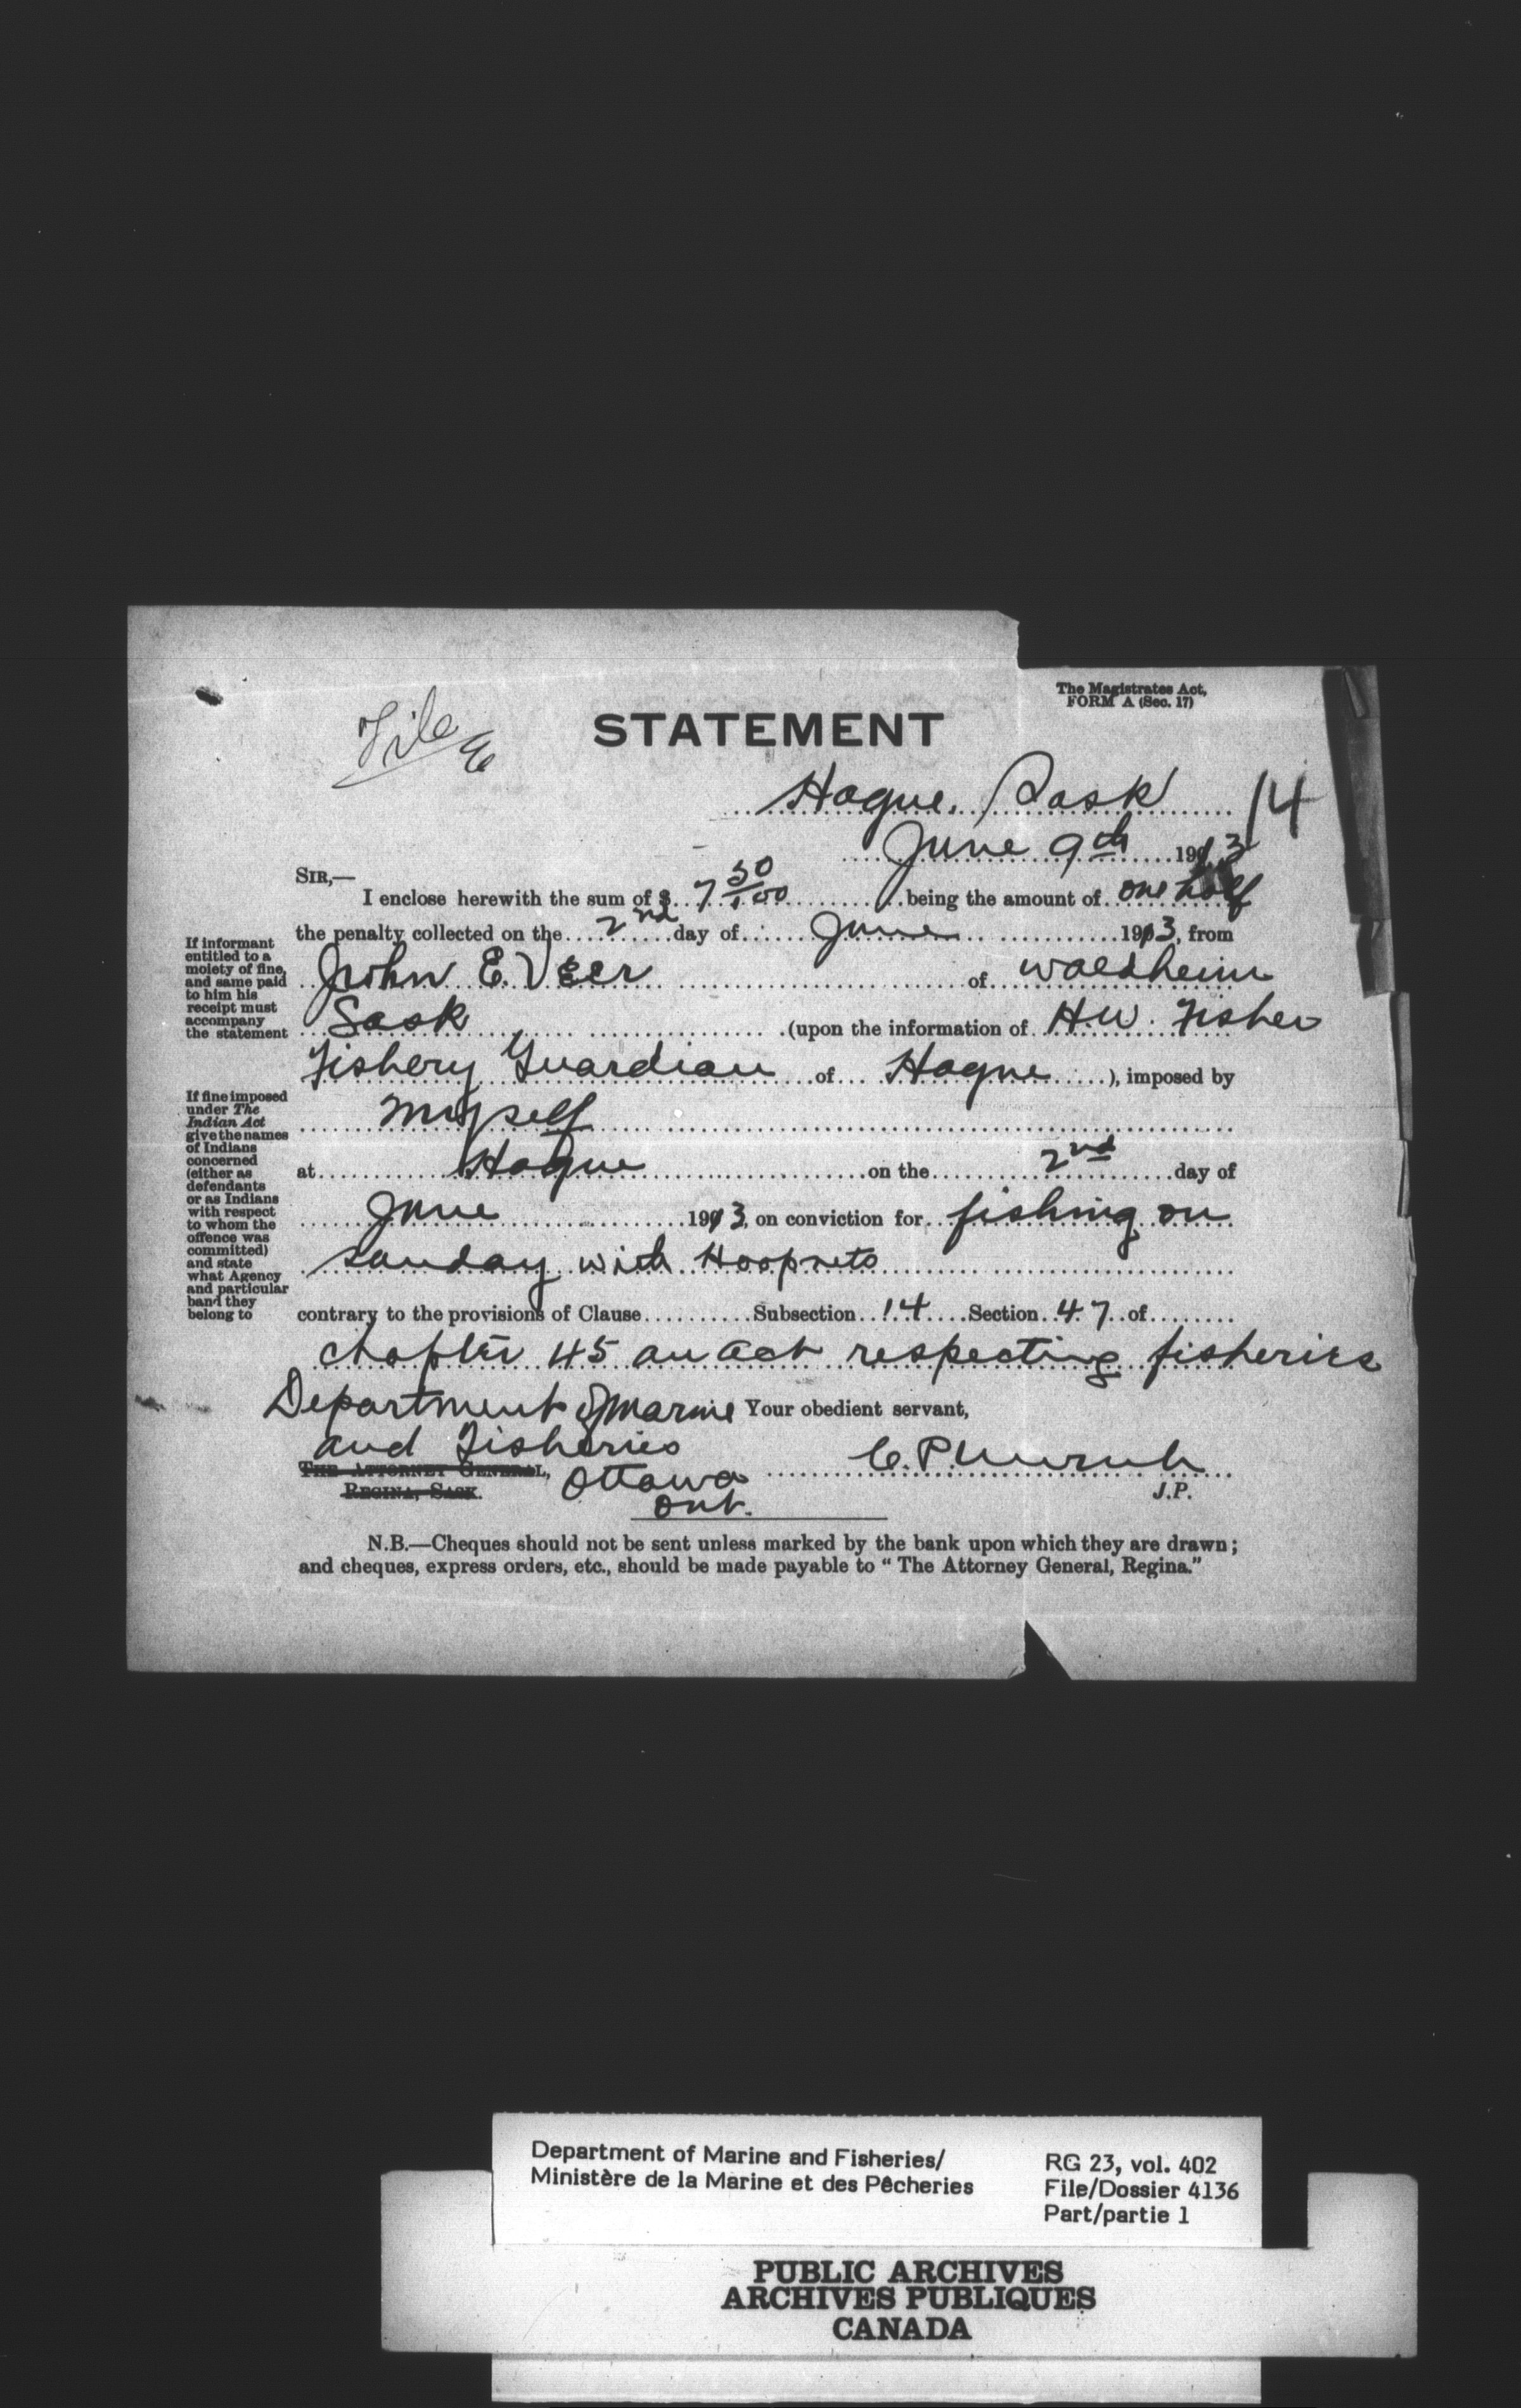 The Magistrates Act,
FORM A (Sec. 17)
File
STATEMENT
Hague. Sask
14
June 9th 1913
SIR,—
I enclose herewith the sum of $ 7 50/100 being the amount of one half
the penalty collected on the 2nd day of June 1913, from
John E. Veer of Waldheim
Sask (upon the information of H.W. Fisher
Fishery Guardian of Hague ), imposed by
myself
at Hague on the 2nd day of
June 1913, on conviction for fishing on
sunday with Hoopnets
contrary to the provisions of Clause Subsection 14 Section 47 of
chapter 45 an act respecting fisheries
If informant
entitled to a
moiety of fine,
and same paid
to him his
receipt must
accompany
the statement
If fine imposed
under The
Indian Act
give the names
of Indians
concerned
(either as
defendants
or as Indians
with respect
to whom the
offence was
committed)
and state
what Agency
and particular
band they
belong to
Department of Marine Your obedient servant,
and Fisheries
THE ATTORNEY GENERAL, Ottawa
REGINA, SASK. Ont.
J.P.
N.B.—Cheques should not be sent unless marked by the bank upon which they are drawn;
and cheques, express orders, etc., should be made payable to "The Attorney General, Regina."
Department of Marine and Fisheries/
Ministère de la Marine et des Pêcheries
RG 23, vol. 402
File/Dossier 4136
Part/partie 1
PUBLIC ARCHIVES
ARCHIVES PUBLIQUES
CANADA